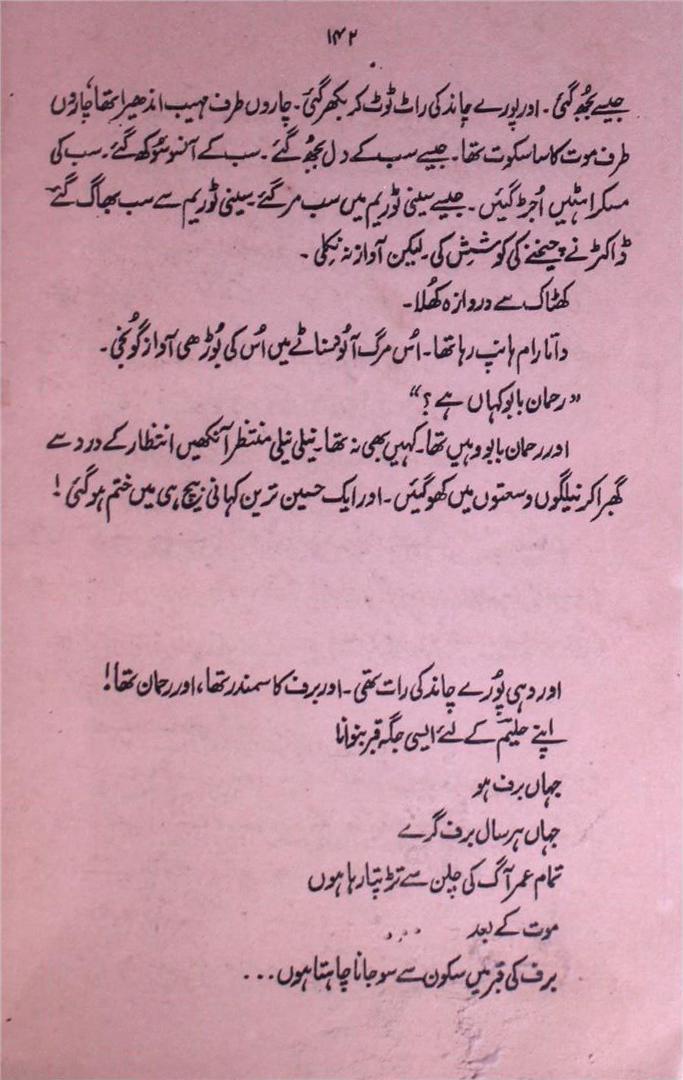 ۱۴۲
جیسے بجھ گئی۔ اور پورے چاند کی رات ٹوٹ کر بکھر گئی۔ چاروں طرف مہیب اندھیرا تھا چاروں
طرف موت کا سا سکوت تھا۔ جیسے سب کے دل بجھ گئے۔ سب کے آنسو سُوکھ گئے۔ سب کی
مسکراہٹیں اُجڑ گئیں۔ جیسے سینی ٹوریم میں سب مر گئے سینی ٹوریم سے سب بھاگ گئے
ڈاکٹر نے چیخنے کی کوشش کی۔ لیکن آواز نہ نکلی۔
کھٹاک سے دروازہ کھُلا۔
داتا رام ہانپ رہا تھا۔ اُس مرگ آلود سناٹے میں اُس کی بُوڑھی آواز گونجی۔
”رحمان بابو کہاں ہے؟“
اور رحمان بابو وہیں تھا۔ کہیں بھی نہ تھا۔ نیلی نیلی منتظر آنکھیں انتظار کے درد سے
گھبرا کر نیلگوں وسعتوں میں کھو گئیں۔ اور ایک حسین ترین کہانی بیچ ہی میں ختم ہو گئی!
اور وہی پُورے چاند کی رات تھی۔ اور برف کا سمندر تھا، اور رحمان تھا!
اپنے حلیم کے لئے ایسی جگہ قبر بنوانا
جہاں برف ہو
جہاں ہر سال برف گرے
تمام عمر آگ کی جلن سے تڑپتا رہا ہوں
موت کے بعد ...
برف کی قبر میں سکون سے سو جانا چاہتا ہوں...